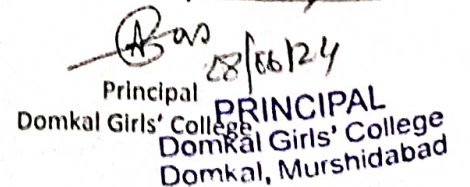 28/06/24
Principal
Domkal Girls' College
PRINCIPAL
Domkal Girls' College
Domkal, Murshidabad